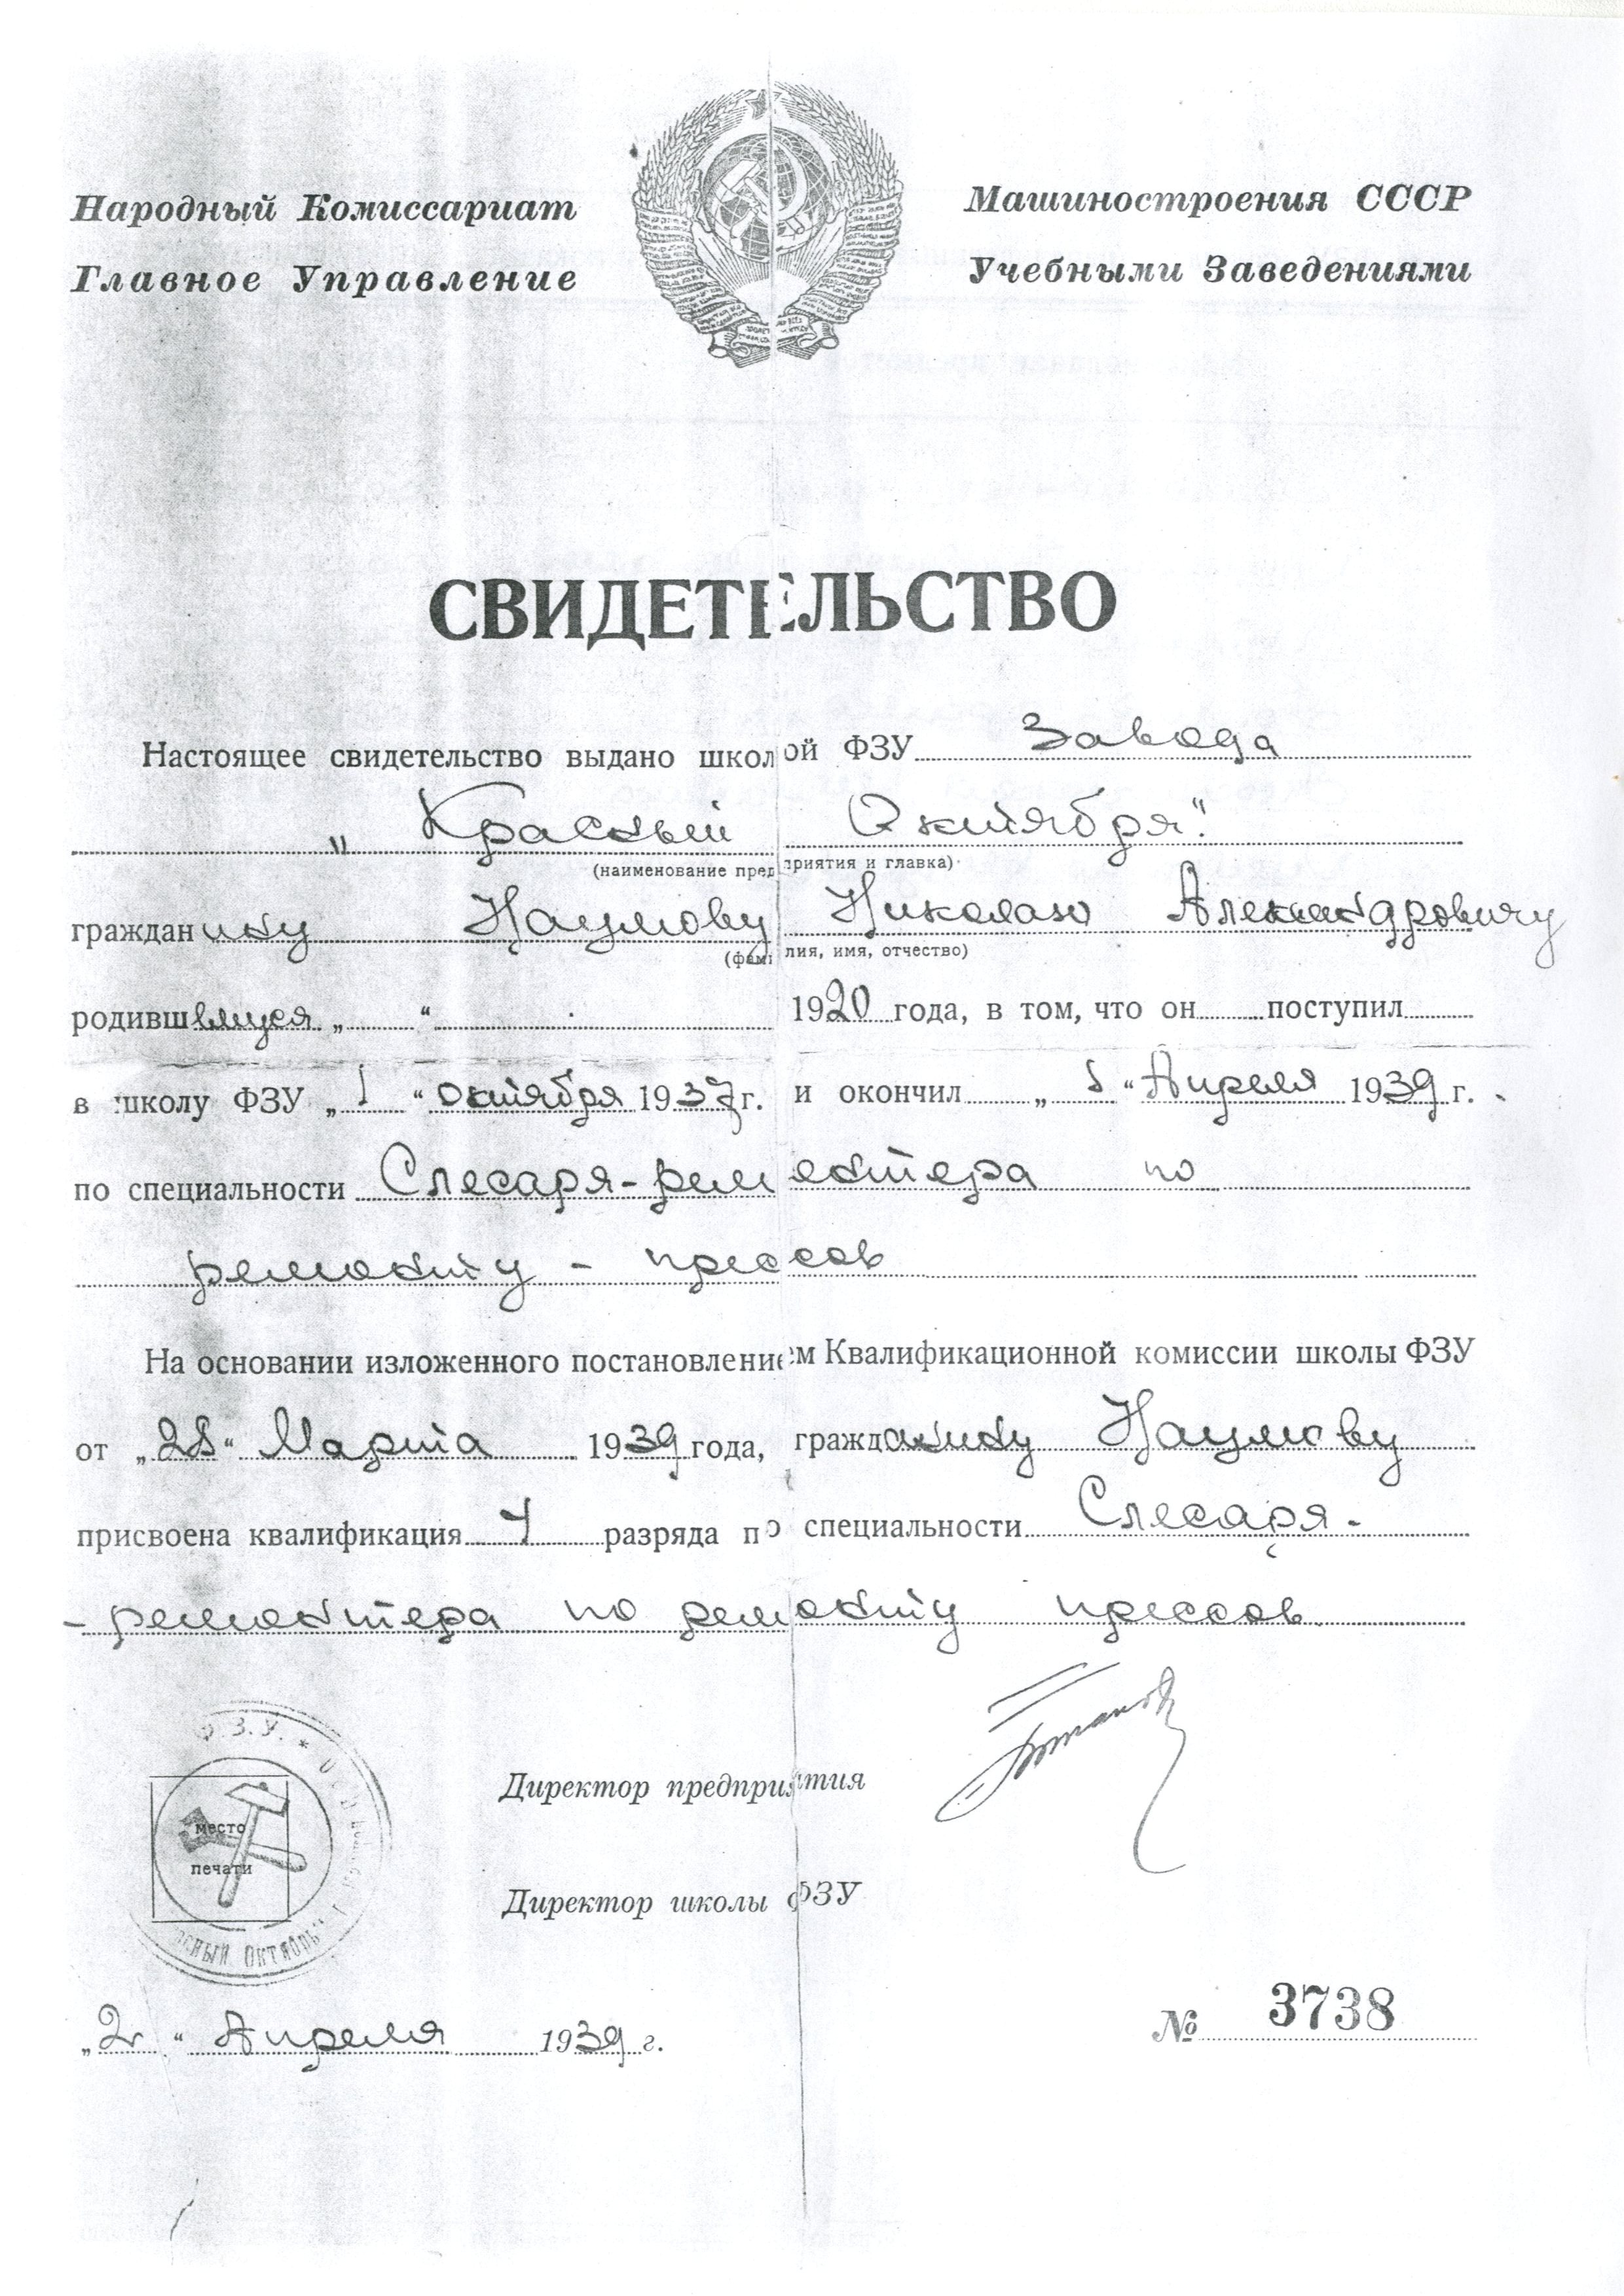 Народный Комиссариат Машиностроения СССР
Главное Управление Учебными Заведениями
СВИДЕТЕЛЬСТВО
Настоящее свидетельство выдано школой ФЗУ Завода
„Красный Октября".
(наименование предприятия и главка)
гражданину Наумову Николаю Александровичу
(фамилия, имя, отчество)
родившемуся „ “ 1920 года, в том, что он поступил
в школу ФЗУ „1“ октября 1937 г. и окончил „1“ Апреля 1939 г.
по специальности Слесаря-ремонтера по
ремонту - прессов
На основании изложенного постановлением Квалификационной комиссии школы ФЗУ
от „28“ Марта 1939 года, гражданину Наумову
присвоена квалификация 4 разряда по специальности Слесаря-
-ремонтера по ремонту прессов
Ф.З.У. *
место
печати
Октябрь
Директор предприятия
Директор школы ФЗУ
„2“ Апреля 1939 г.
№ 3738